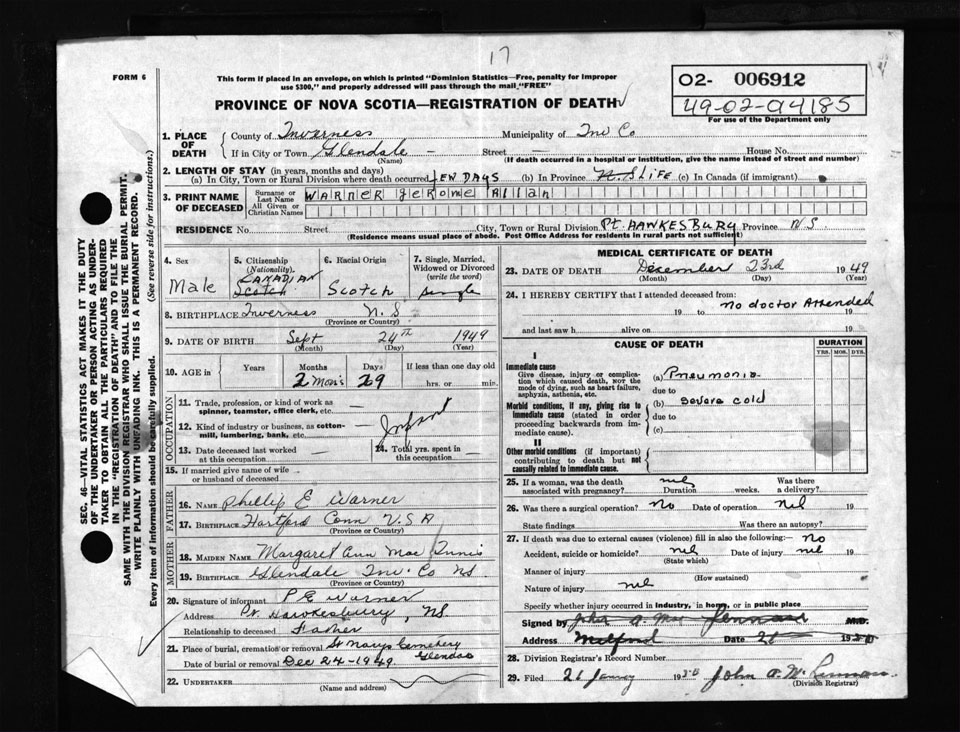 17
FORM 6
This form if placed in an envelope, on which is printed "Dominion Statistics—Free, penalty for improper
use $300," and properly addressed will pass through the mail "FREE"
PROVINCE OF NOVA SCOTIA—REGISTRATION OF DEATH
O2- 006912
49-02-04185
For use of the Department only
SEC. 46—VITAL STATISTICS ACT MAKES IT THE DUTY
OF THE UNDERTAKER OR PERSON ACTING AS UNDER-
TAKER TO OBTAIN ALL THE PARTICULARS REQUIRED
IN THE "REGISTRATION OF DEATH" AND TO FILE THE
SAME WITH THE DIVISION REGISTRAR WHO SHALL ISSUE THE BURIAL PERMIT.
WRITE PLAINLY WITH UNFADING INK. THIS IS A PERMANENT RECORD.
Every item of information should be carefully supplied. (See reverse side for instructions.)
1. PLACE OF DEATH
County of Inverness Municipality of Inv Co
If in City or Town Glendale — Street — House No.
(Name) (If death occurred in a hospital or institution, give the name instead of street and number)
2. LENGTH OF STAY (in years, months and days)
(a) In City, Town or Rural Division where death occurred FEW DAYS (b) In Province N.S LIFE (c) In Canada (if immigrant)
3. PRINT NAME OF DECEASED
Surname or Last Name WARNER Jerome Allan
All Given or Christian Names
RESIDENCE No. Street City, Town or Rural Division Pt. HAWKESBURY Province N S
(Residence means usual place of abode. Post Office Address for residents in rural parts not sufficient)
4. Sex
Male
5. Citizenship (Nationality).
CANADIAN
Scotch
6. Racial Origin
Scotch
7. Single, Married, Widowed or Divorced (write the word)
single
8. BIRTHPLACE Inverness N.S
(Province or Country)
9. DATE OF BIRTH Sept 24th 1949
(Month) (Day) (Year)
10. AGE in
Years Months Days If less than one day old
2 Mon's 29 hrs. or min.
OCCUPATION
11. Trade, profession, or kind of work as
spinner, teamster, office clerk, etc. —
12. Kind of industry or business, as cotton-
mill, lumbering, bank, etc.
Infant
13. Date deceased last worked
at this occupation —
14. Total yrs. spent in
this occupation —
15. If married give name of wife
or husband of deceased
FATHER
16. Name Phillip E Warner
17. Birthplace Hartford Conn U.S A
(Province or Country)
MOTHER
18. Maiden Name Margaret Ann Mac Innis
19. Birthplace Glendale Inv. Co NS
(Province or Country)
20. Signature of informant P E Warner
Address Pt. Hawkesbury, NS
Relationship to deceased Father
21. Place of burial, cremation or removal St Marys Cemetery
Glendale
Date of burial or removal Dec 24-1949
22. UNDERTAKER
(Name and address)
MEDICAL CERTIFICATE OF DEATH
23. DATE OF DEATH December 23rd 1949
(Month) (Day) (Year)
24. I HEREBY CERTIFY that I attended deceased from:
19 to No doctor Attended 19
and last saw h alive on 19
CAUSE OF DEATH
DURATION
YRS. MOS. DYS.
I
Immediate cause
Give disease, injury or complica-
tion which caused death, NOT the
mode of dying, such as heart failure,
asphyxia, asthenia, etc.
(a) Pneumonia
due to
Morbid conditions, if any, giving rise to
immediate cause (stated in order
proceeding backwards from im-
mediate cause).
(b) Severe cold
due to
(c)
II
Other morbid conditions (if important)
contributing to death but not
causally related to immediate cause.
25. If a woman, was the death nil Was there
associated with pregnancy? Duration weeks. a delivery?
26. Was there a surgical operation? No Date of operation nil 19
State findings Was there an autopsy?
27. If death was due to external causes (violence) fill in also the following:— No
Accident, suicide or homicide? nil Date of injury nil 19
(State which)
Manner of injury
(How sustained)
Nature of injury nil
Specify whether injury occurred in industry, in home, or in public place
Signed by John A. M.D.
Address Milford Date 21 1950
28. Division Registrar's Record Number
29. Filed 21 January 1950 John A. Mc
(Division Registrar)